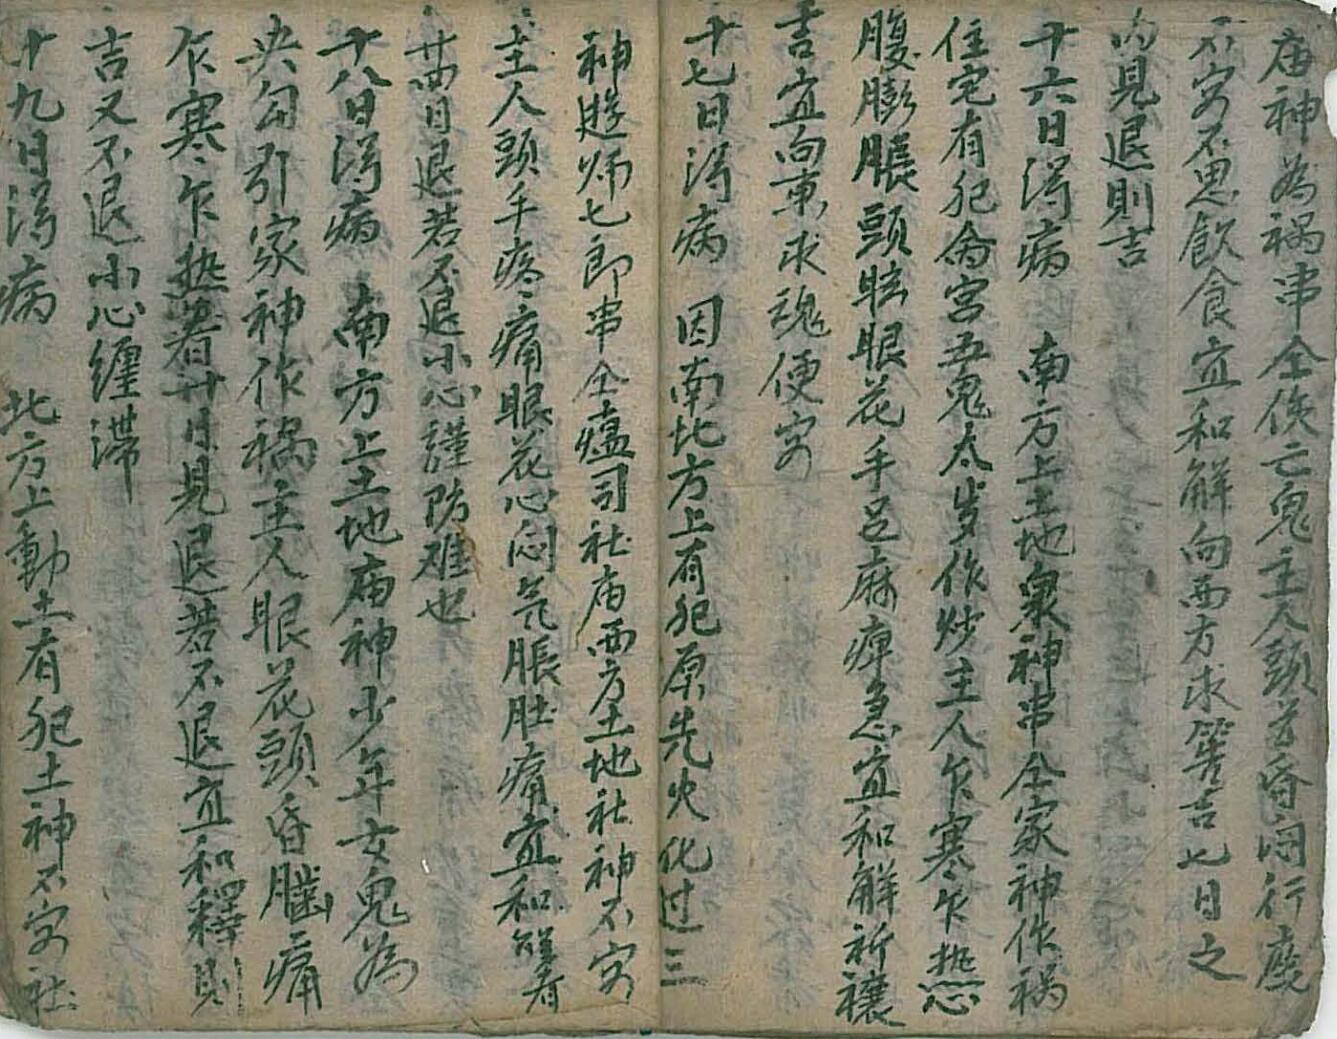 庙神為禍串仝伤亡鬼主人頭昏闷行座
不安不思飲食宜和解向西方求答吉七日之
内見退則吉
十六日得病 南方上土地衆神串仝家神作禍
住宅有犯命宮五鬼太岁作炒主人乍寒乍热心
腹膨脹頭眩眼花手足麻痺急宜和解祈禳
吉宜向東求魂便安
十七日得病 因南北方上有犯原先火化过三
神遊师七郎串仝瘟司社庙西方土地社神不安
主人頭手疼痛眼花心闷気脹肚痛宜和解看
廿四日退若不退小心謹防难也
十八日得病 南方上土地庙神少年女鬼為
央勾引家神作禍主人眼花頭昏腦痛
乍寒乍热看廿日見退若不退宜和釋則
吉又不退小心纏滞
十九日得病 北方上動土有犯土神不安社